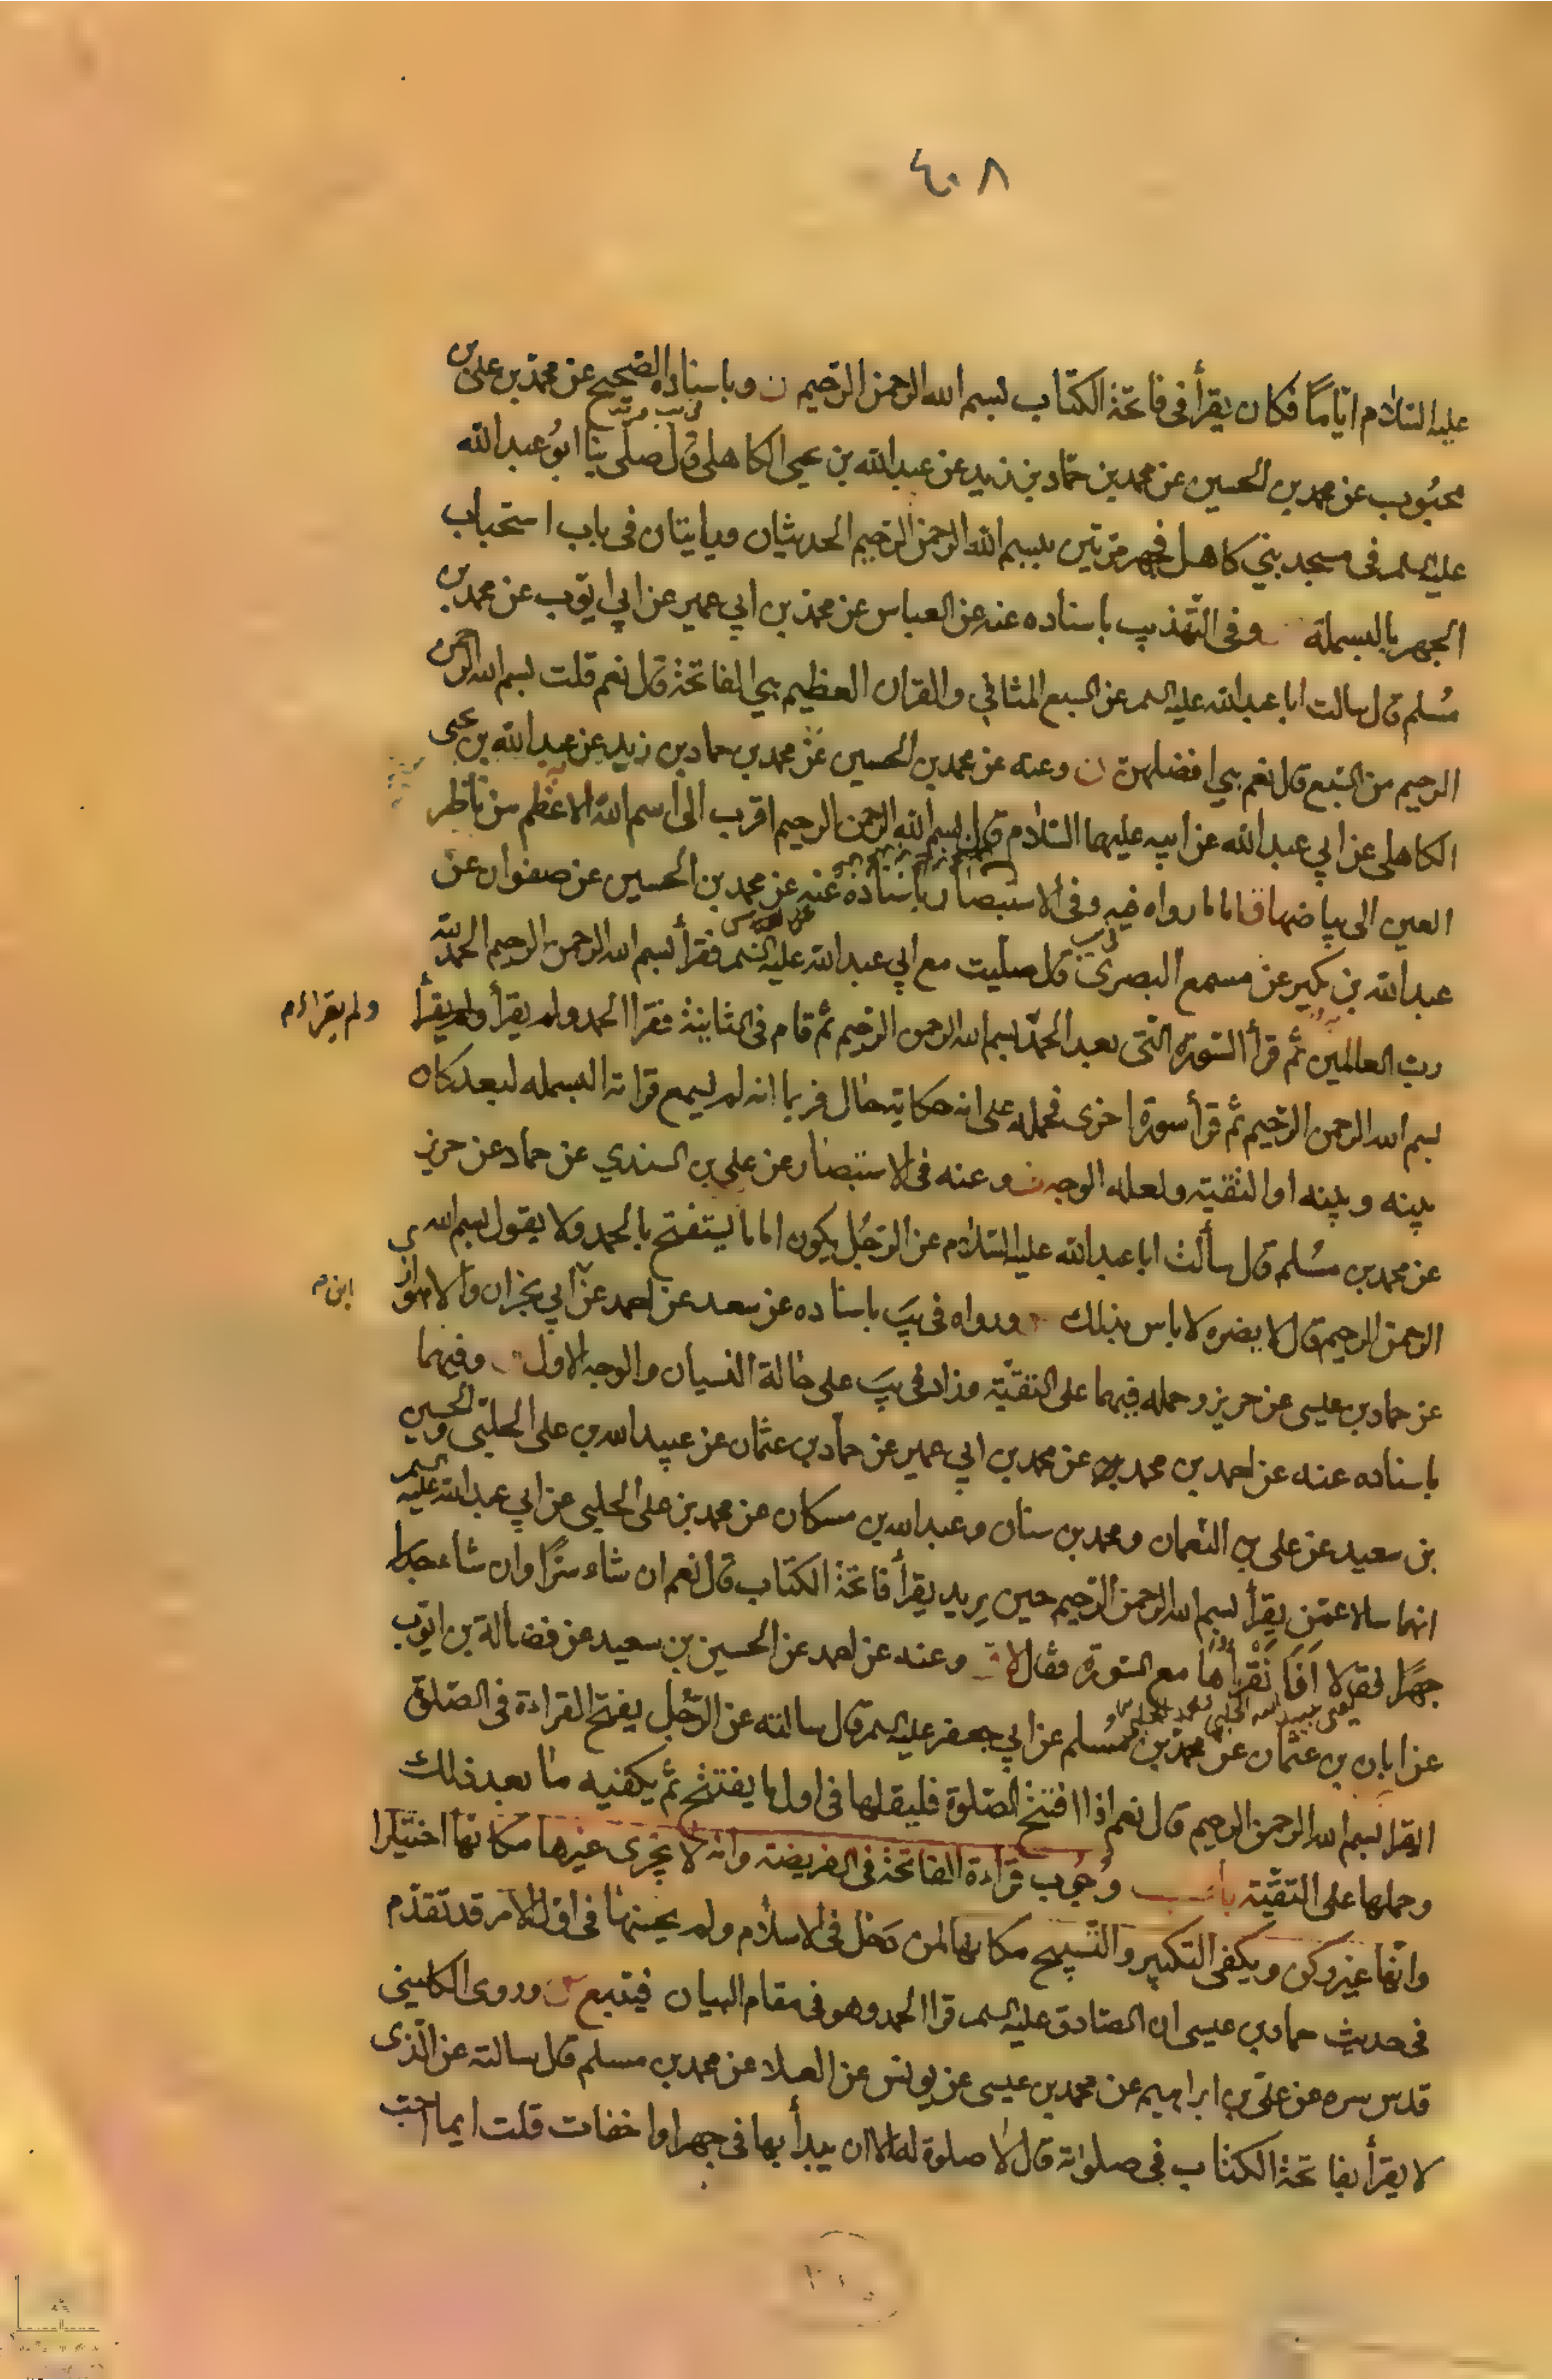 ٤٠٨
عليه السّلام ايّامًا فكان يقرأ فى فاتحة الكتاب بسم الله الرحمن الرّحيم ن وباسناده الصّحيح عن محمّد بن على بن
محبُوب عن محمد بن الحسين عن محمد بن حمّاد بن زيد عن عبد الله بن يحيى الكاهلى قال صلّى بنا ابوُ عبد الله
عليه السلم فى مسجد بني كاهل فجهر مرّتين ببسم الله الرحمن الرّحيم الحديثان وياتيتان فى باب استحباب
الجهر بالبسملة وفى التّهذيب باسناده عنه عن العباس عن محمد بن ابي عمير عن ابي ايّوب عن محمد بن
مُسلم قال سالت ابا عبد الله عليه السلم عن السبع المثاني والقران العظيم هي الفاتحة قال نعم قلت بسم الله الرحمن
الرحيم من السّبع قال نعم هي افضلهنّ ن وعنه عن محمد بن الحسين عن محمد بن حماد بن زيد عن عبد الله بن يحيى
الكاهلى عن ابي عبد الله عن ابيه عليهما السّلام قال بسم الله الرحمن الرحيم اقرب الى اسم الله الاعظم من ناظر
العين الى بياضها فاما ما رواه فيه وفى الاستبصار باسناده عنه عن محمد بن الحسين عن صفوان عن
عبد الله بن بكير عن مسمع البصرى قال صلّيت مع ابي عبد الله عليه السلم فقرأ بسم الله الرحمن الرحيم الحمد لله
ربّ العالمين ثمّ قرأ السّورة الّتى بعد الحمد بسم الله الرحمن الرّحيم ثمّ قام فى الثانية فقرا الحمد ولم يقرأ ولم يقرأ
ولم يقراءم
بسم الله الرحمن الرّحيم ثمّ قرأ سورة اخرى فحمله على انه حكاية حال فربما انه لم يسمع قراءته البسمله لبعد كان
بينه وبينه او التقيّة ولعله الوجه وعنه فى الاستبصار عن علي بن السندي عن حماد عن حريز
عن محمد بن مسُلم قال سألت ابا عبد الله عليه السّلام عن الرّجُل يكون اماما يستفتح بالحمد ولا يقول بسم الله
الرحمن الرحيم قال لا يضره لا باس بذلك ورواه فى يَب باسناده عن سعد عن احمد عن ابي نجران والاهواز
ابن م
عن حماد بن عيسى عن حريز وحمله فيهما على التقيّة وزاد فى يَب على حالة النسيان والوجه الاول وفيهما
باسناده عنه عن احمد بن محمد عن محمد بن ابي عمير عن حماد بن عثمان عن عبيد الله بن على الحلبى والحسين
بن سعيد عن على بن النّعمان ومحمد بن سنان وعبد الله بن مسكان عن محمد بن على الحلبى عن ابي عبد الله عليه السلم
انهما سالا عمّن يقرأ بسم الله الرحمن الرّحيم حين يريد يقرأ فاتحة الكتاب قال نعم ان شاء سرًّا وان شاء
جهرًا فقالا اَفَاَ نَقْرأُها مع السّورة فقال لا وعنه عن احمد عن الحسين بن سعيد عن فضالة بن ايّوب
عن ابان بن عثمان عن محمّد بن مُسلم عن ابي جعفر عليه السلم قال سالته عن الرّجُل يفتح القراءة فى الصّلوة
ايقرا بسم الله الرحمن الرحيم قال نعم اذا افتتح الصّلوة فليقلها فى اول ما يفتتح ثمّ يكفيه ما بعد ذلك
وحملها على التقيّة باب وجُوب قراءة الفاتحة فى الفريضة وانه لا يجزى غيرها مكانها اختيارا
وانّها غير ركن ويكفى التكبير والتّسبيح مكانها لمن دَخل فى الاسلام ولم يحسنها فى اوّل الامر قد تقدّم
فى حديث حماد بن عيسى ان الصّادق عليه السلم قرا الحمد وهو فى مقام البيان فيتبع وروى الكلينى
قدس سره عن علىّ بن ابراهيم عن محمد بن عيسى عن يونس عن العلا عن محمد بن مسلم قال سالته عن الّذى
لا يقرأ بفاتحة الكتاب فى صلوته قال لا صلوة له الا ان يبدأ بها فى جهر او اخفات قلت ايما احبّ